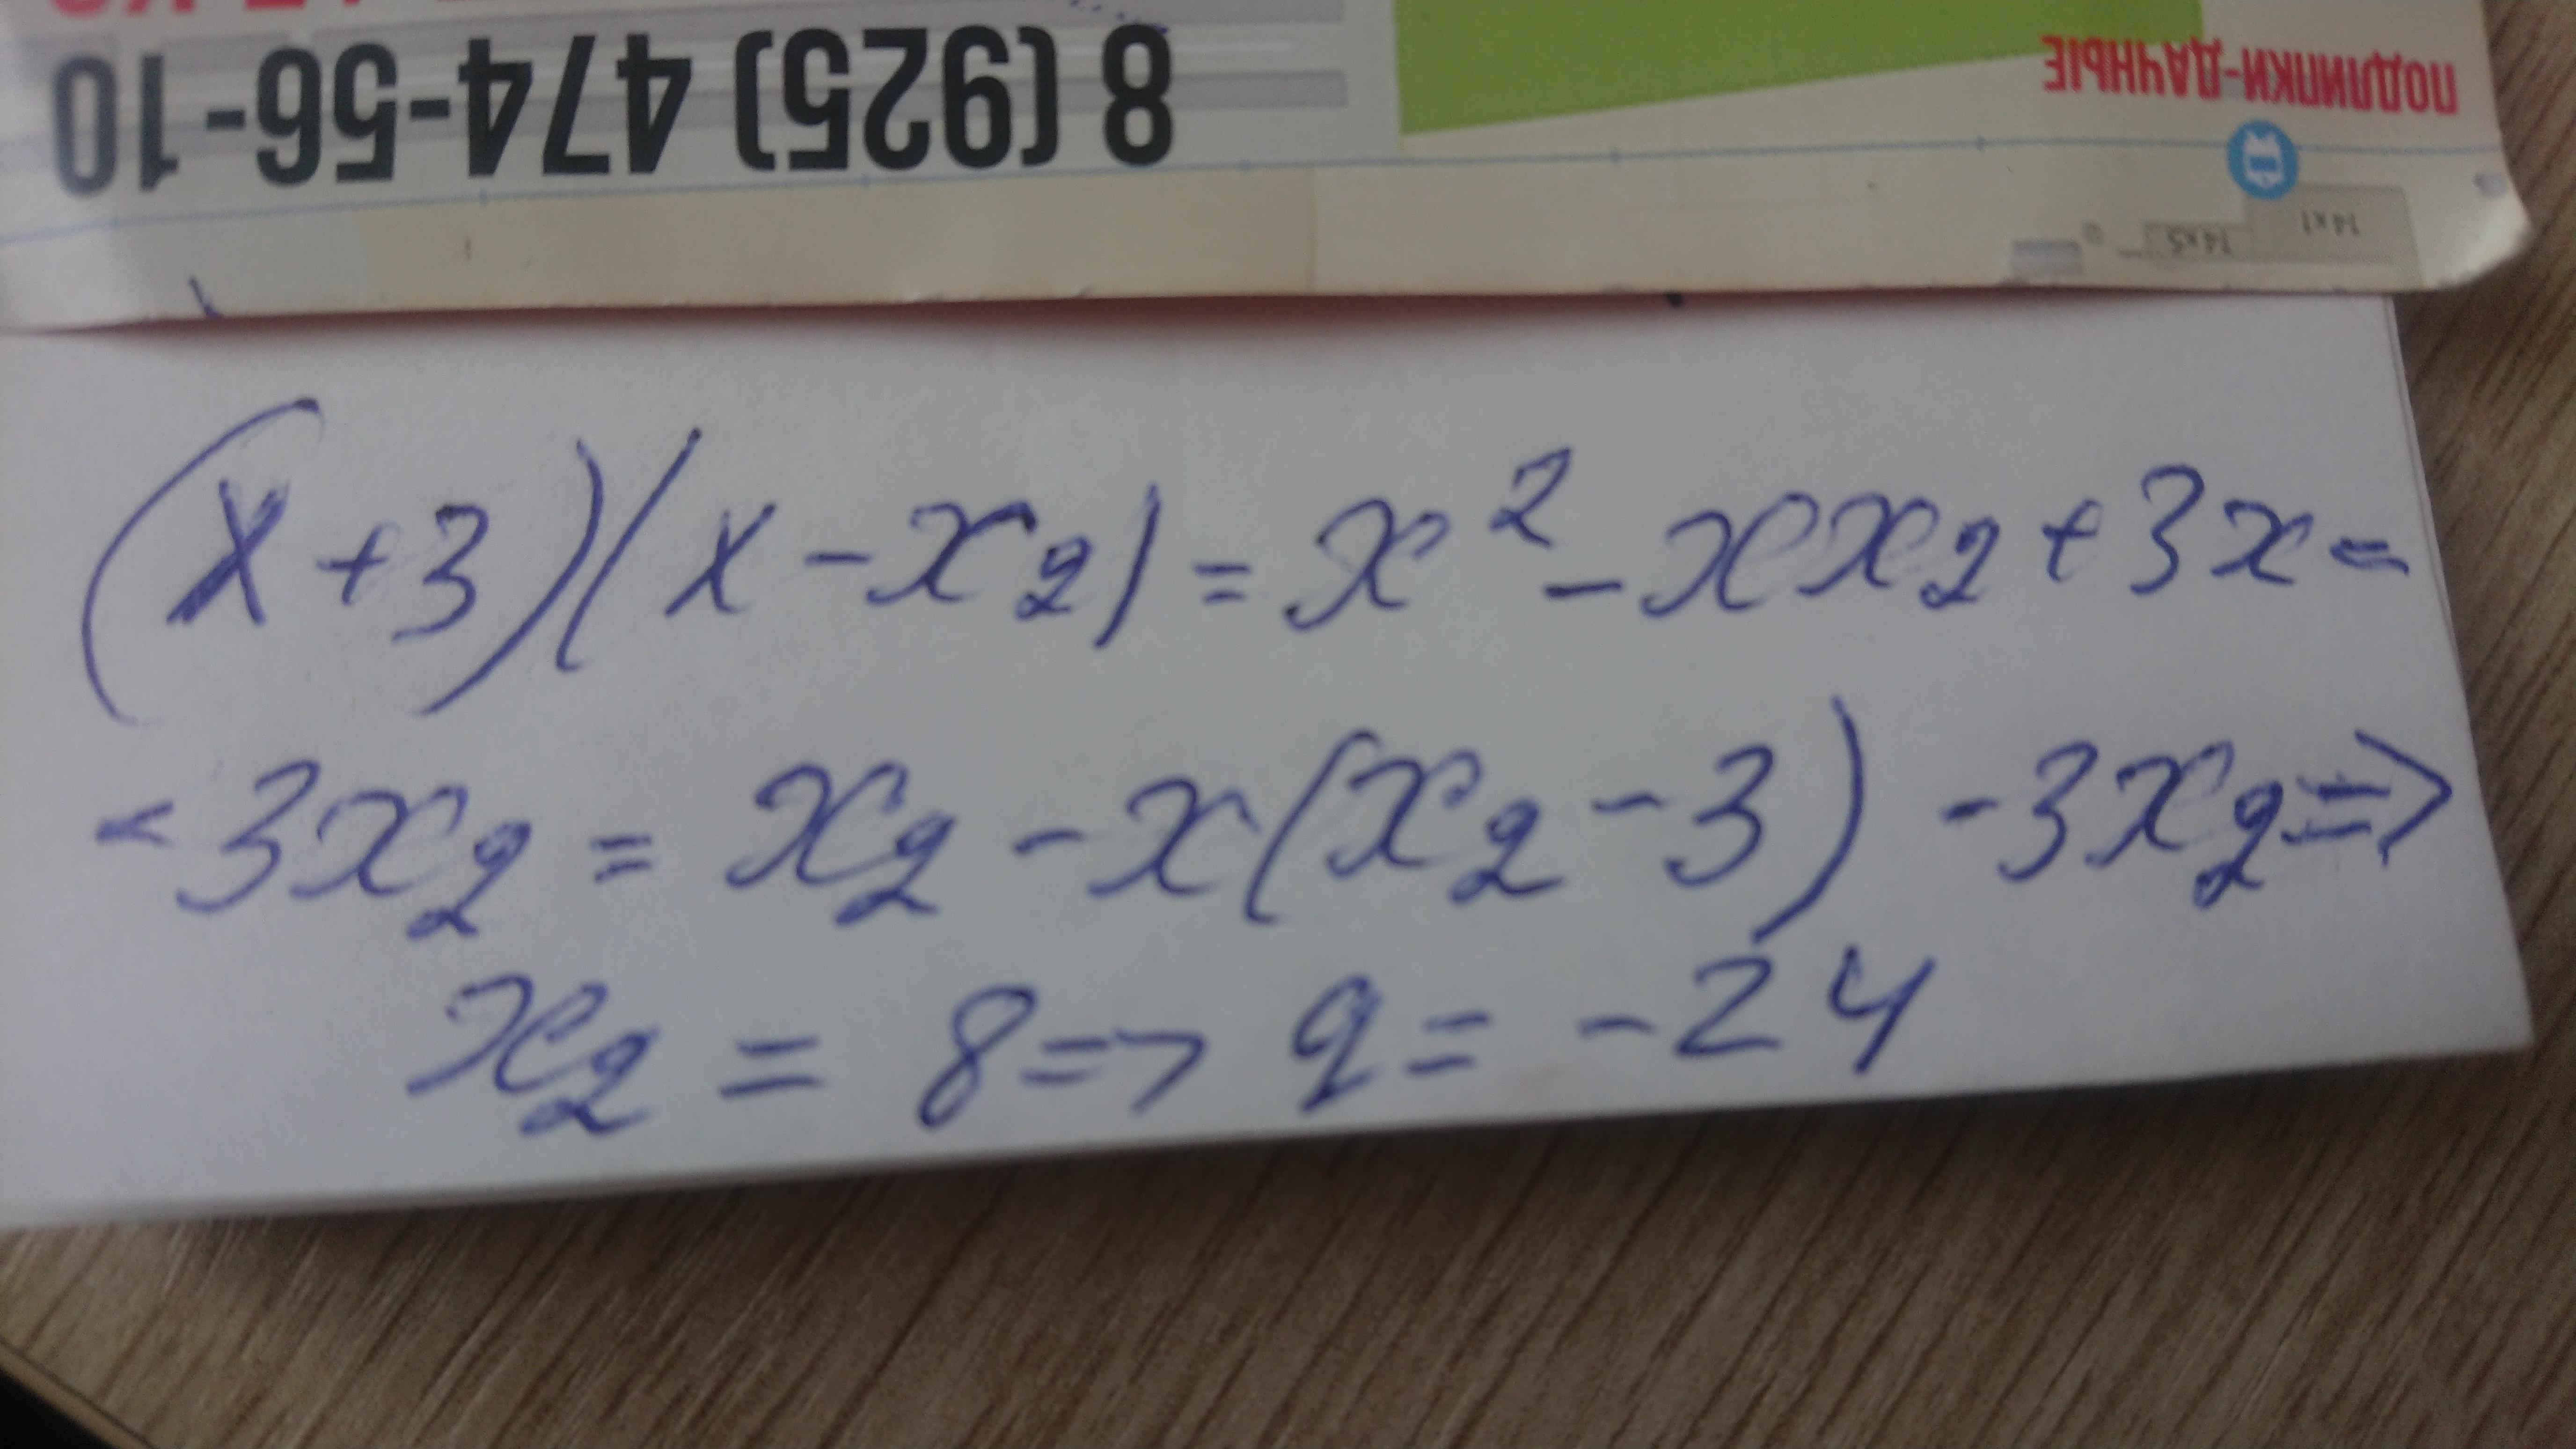 8 (925) 474-56-10
ПОДЛИПКИ-ДАЧНЫЕ
14к1
14к5
(x+3)(x-x₂)=x²-xx₂+3x=
-3x₂=x₂-x(x₂-3)-3x₂=>
x₂=8=>q=-24